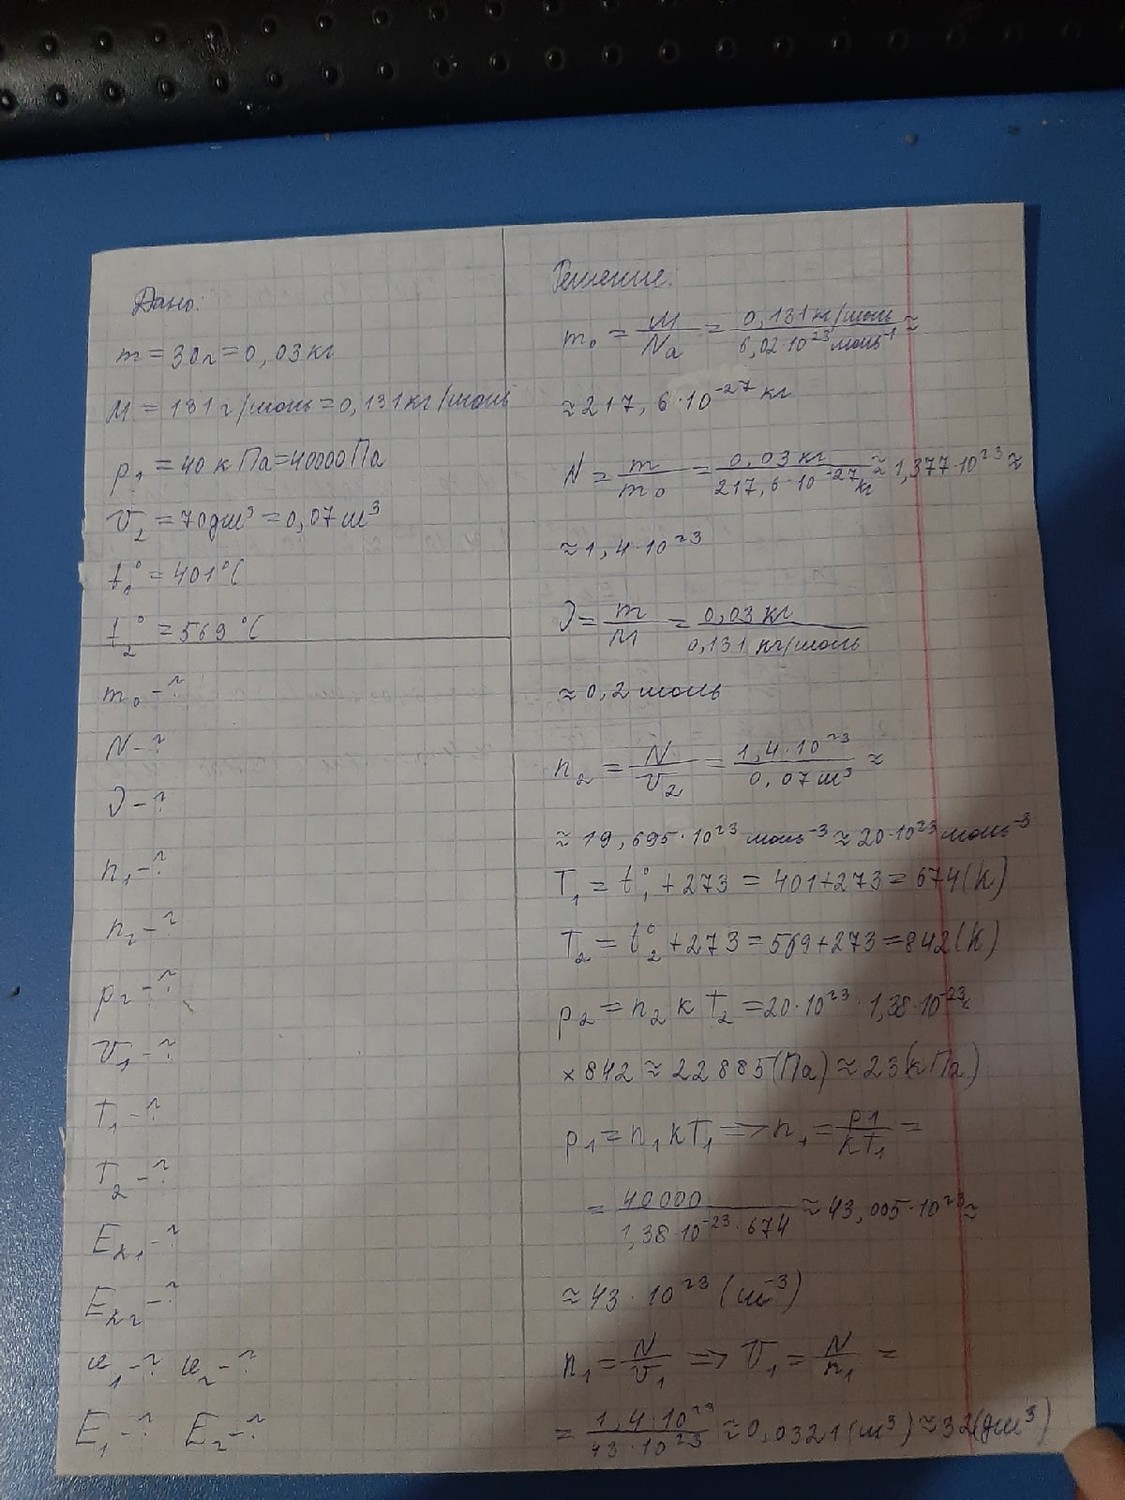 Дано:
m = 30г = 0,03 кг
M = 131 г/моль = 0,131 кг/моль
p₁ = 40 кПа = 40000 Па
V₂ = 70 дм³ = 0,07 м³
t₁° = 401°C
t₂° = 569 °C
m₀ - ?
N - ?
ν - ?
n₁ - ?
n₂ - ?
p₂ - ?
V₁ - ?
T₁ - ?
T₂ - ?
Eₖ₁ - ?
Eₖ₂ - ?
u₁ - ? u₂ - ?
E₁ - ? E₂ - ?
Решение:
m₀ = M/Nа = 0,131 кг/моль / 6,02·10²³ моль⁻¹ ≈
≈ 217,6·10⁻²⁷ кг
N = m/m₀ = 0,03 кг / 217,6·10⁻²⁷ кг ≈ 1,377·10²³ ≈
≈ 1,4·10²³
ν = m/M = 0,03 кг / 0,131 кг/моль
≈ 0,2 моль
n₂ = N/V₂ = 1,4·10²³ / 0,07 м³ ≈
≈ 19,695·10²³ моль⁻³ ≈ 20·10²³ моль⁻³
T₁ = t₁° + 273 = 401+273 = 674(K)
T₂ = t₂° + 273 = 569+273 = 842(K)
p₂ = n₂ k T₂ = 20·10²³ · 1,38·10⁻²³ ×
× 842 ≈ 22885(Па) ≈ 23(кПа)
p₁ = n₁ k T₁ => n₁ = p₁/kT₁ =
= 40000 / 1,38·10⁻²³·674 ≈ 43,005·10²³ ≈
≈ 43·10²³ (м⁻³)
n₁ = N/V₁ => V₁ = N/n₁ =
= 1,4·10²³ / 43·10²³ ≈ 0,0321(м³) ≈ 32(дм³)